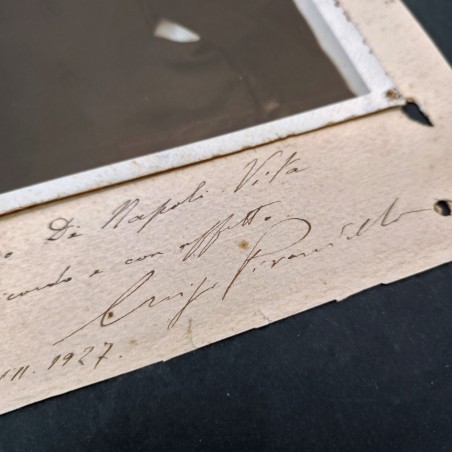 o Di Napoli Vita
icordo e con affetto
Luigi Pirandello
VII. 1927.